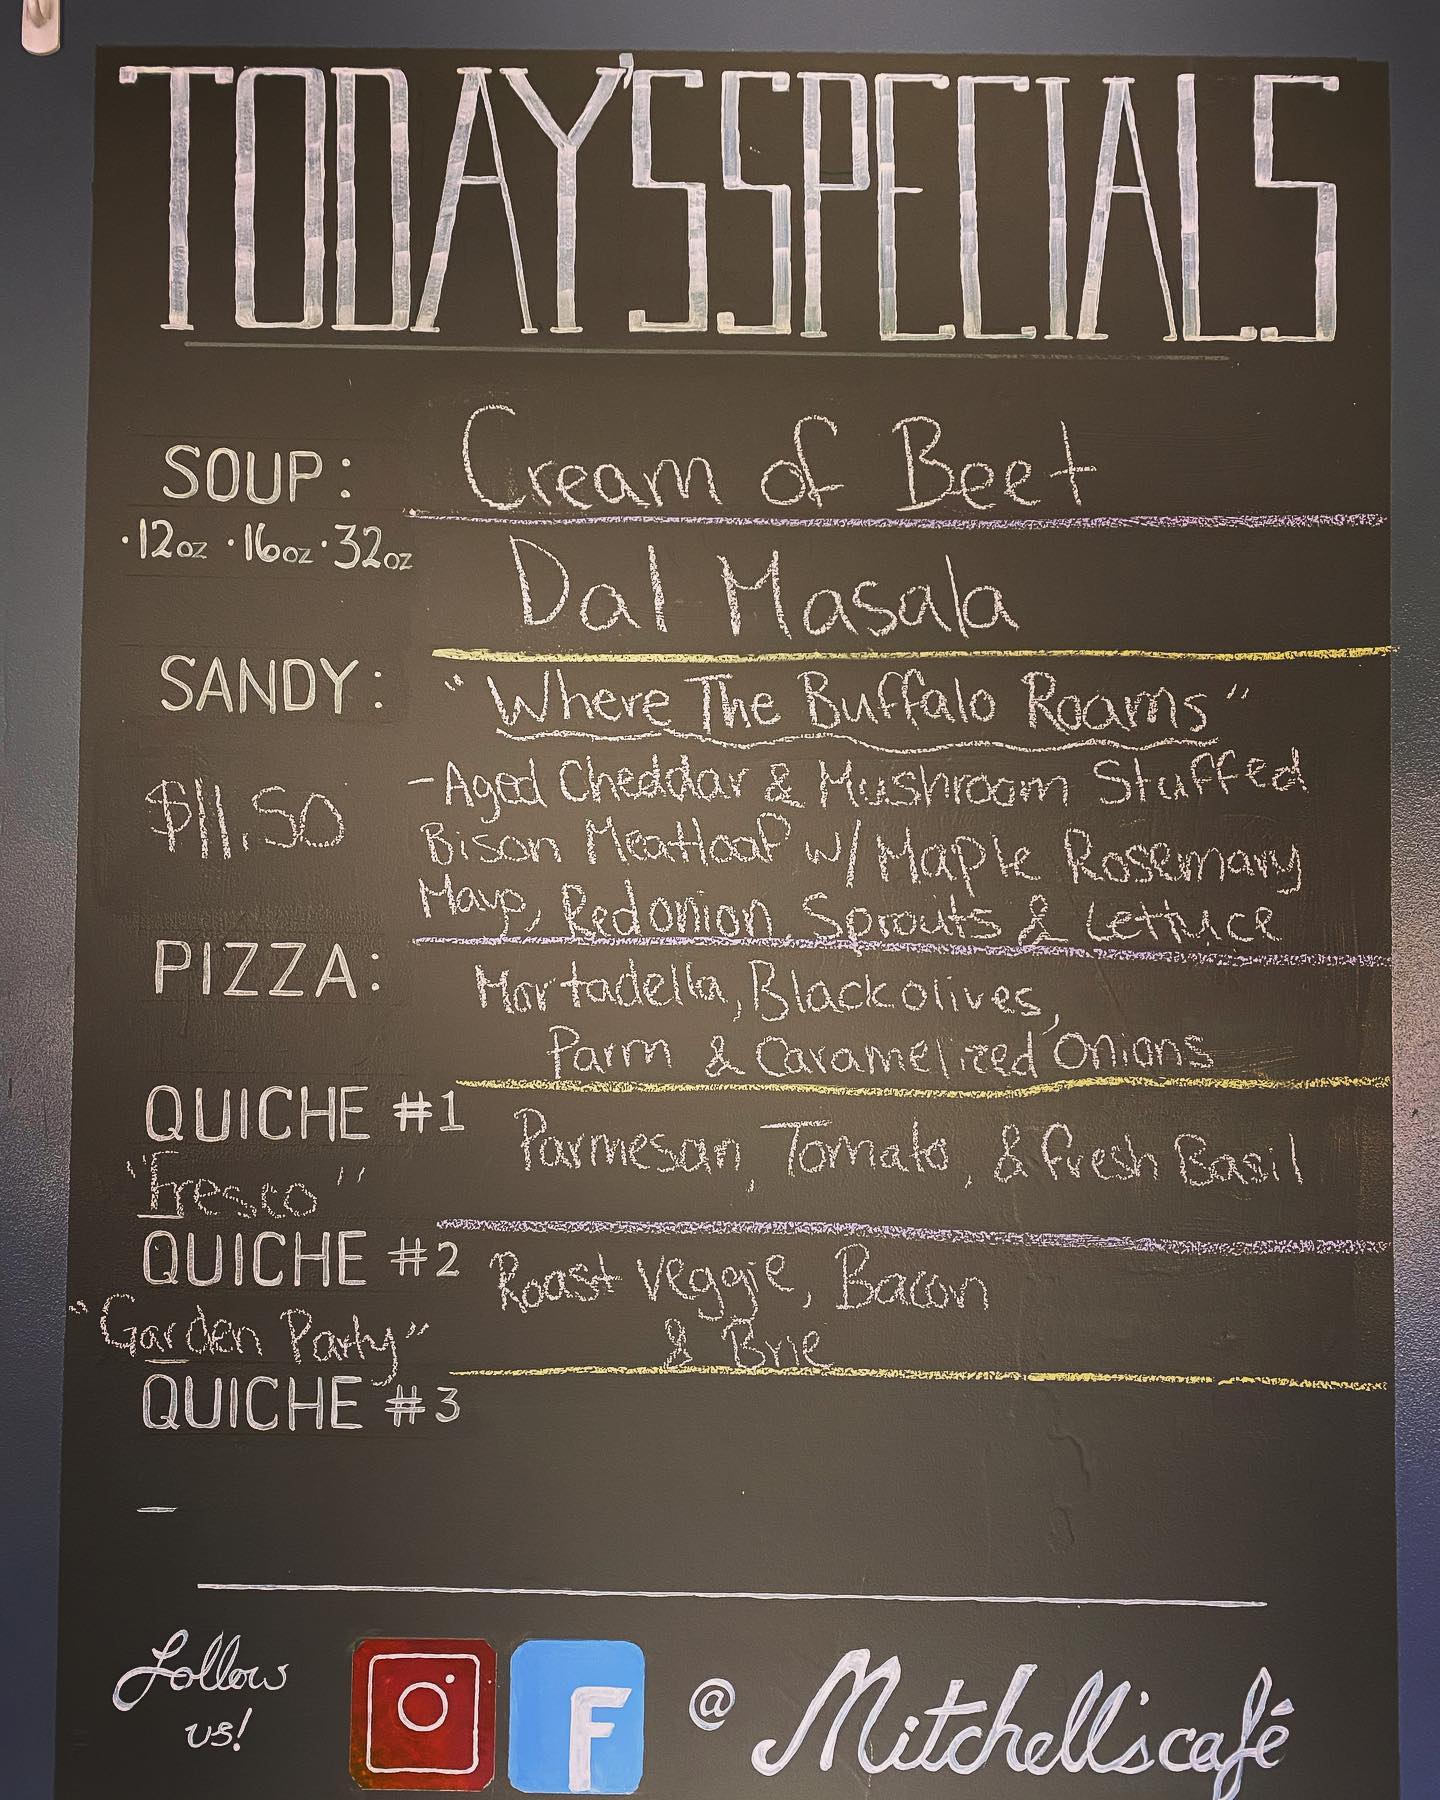 TODAY'S SPECIALS
SOUP: Cream of Beet
·12oz ·16oz ·32oz
Dal Masala
SANDY: "Where The Buffalo Roams"
$11.50
-Aged Cheddar & Mushroom Stuffed
Bison Meatloaf w/ Maple Rosemary
Mayo, Red onion, Sprouts & Lettuce
PIZZA: Mortadella, Black olives,
Parm & Caramelized Onions
QUICHE #1 Parmesan, Tomato, & fresh Basil
"Fresco"
QUICHE #2 Roast Veggie, Bacon
& Brie
"Garden Party"
QUICHE #3
Follow
us!
f
@ Mitchell'scafé